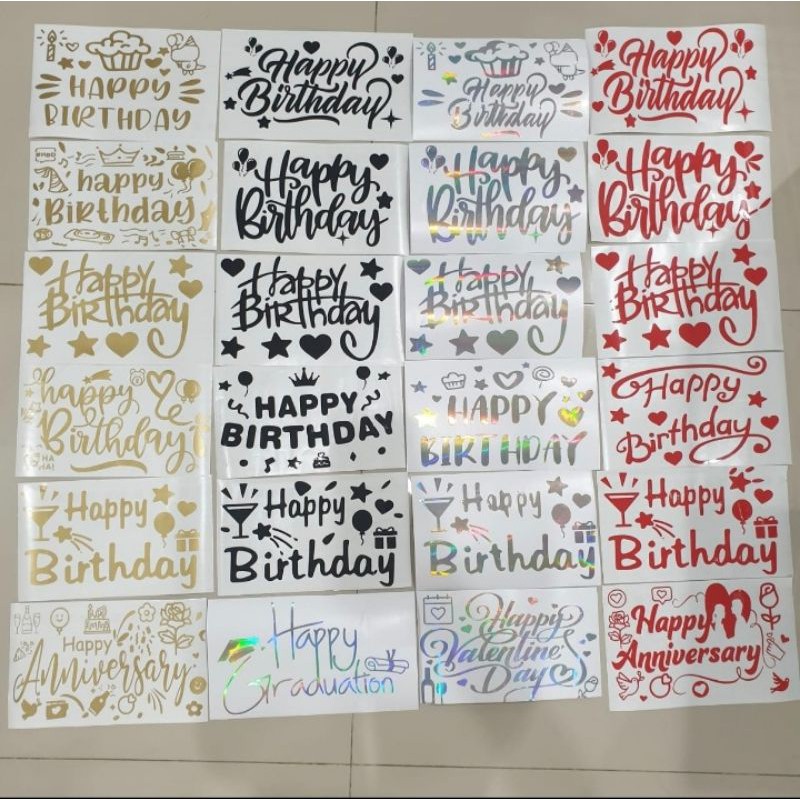 HAPPY
BIRTHDAY
Happy
Birthday
HAPPY
BIRTHDAY
Happy
Birthday
happy
Birthday
Happy
Birthday
Happy
Birthday
Happy
Birthday
Happy
Birthday
Happy
Birthday
Happy
Birthday
Happy
Birthday
happy
Birthday
HA
HA!
HAPPY
BIRTHDAY
HAPPY
BIRTHDAY
Happy
Birthday
Happy
Birthday
Happy
Birthday
Happy
Birthday
Happy
Birthday
Happy
Anniversary
Happy
Graduation
Happy
Valentine's
Day
Happy
Anniversary